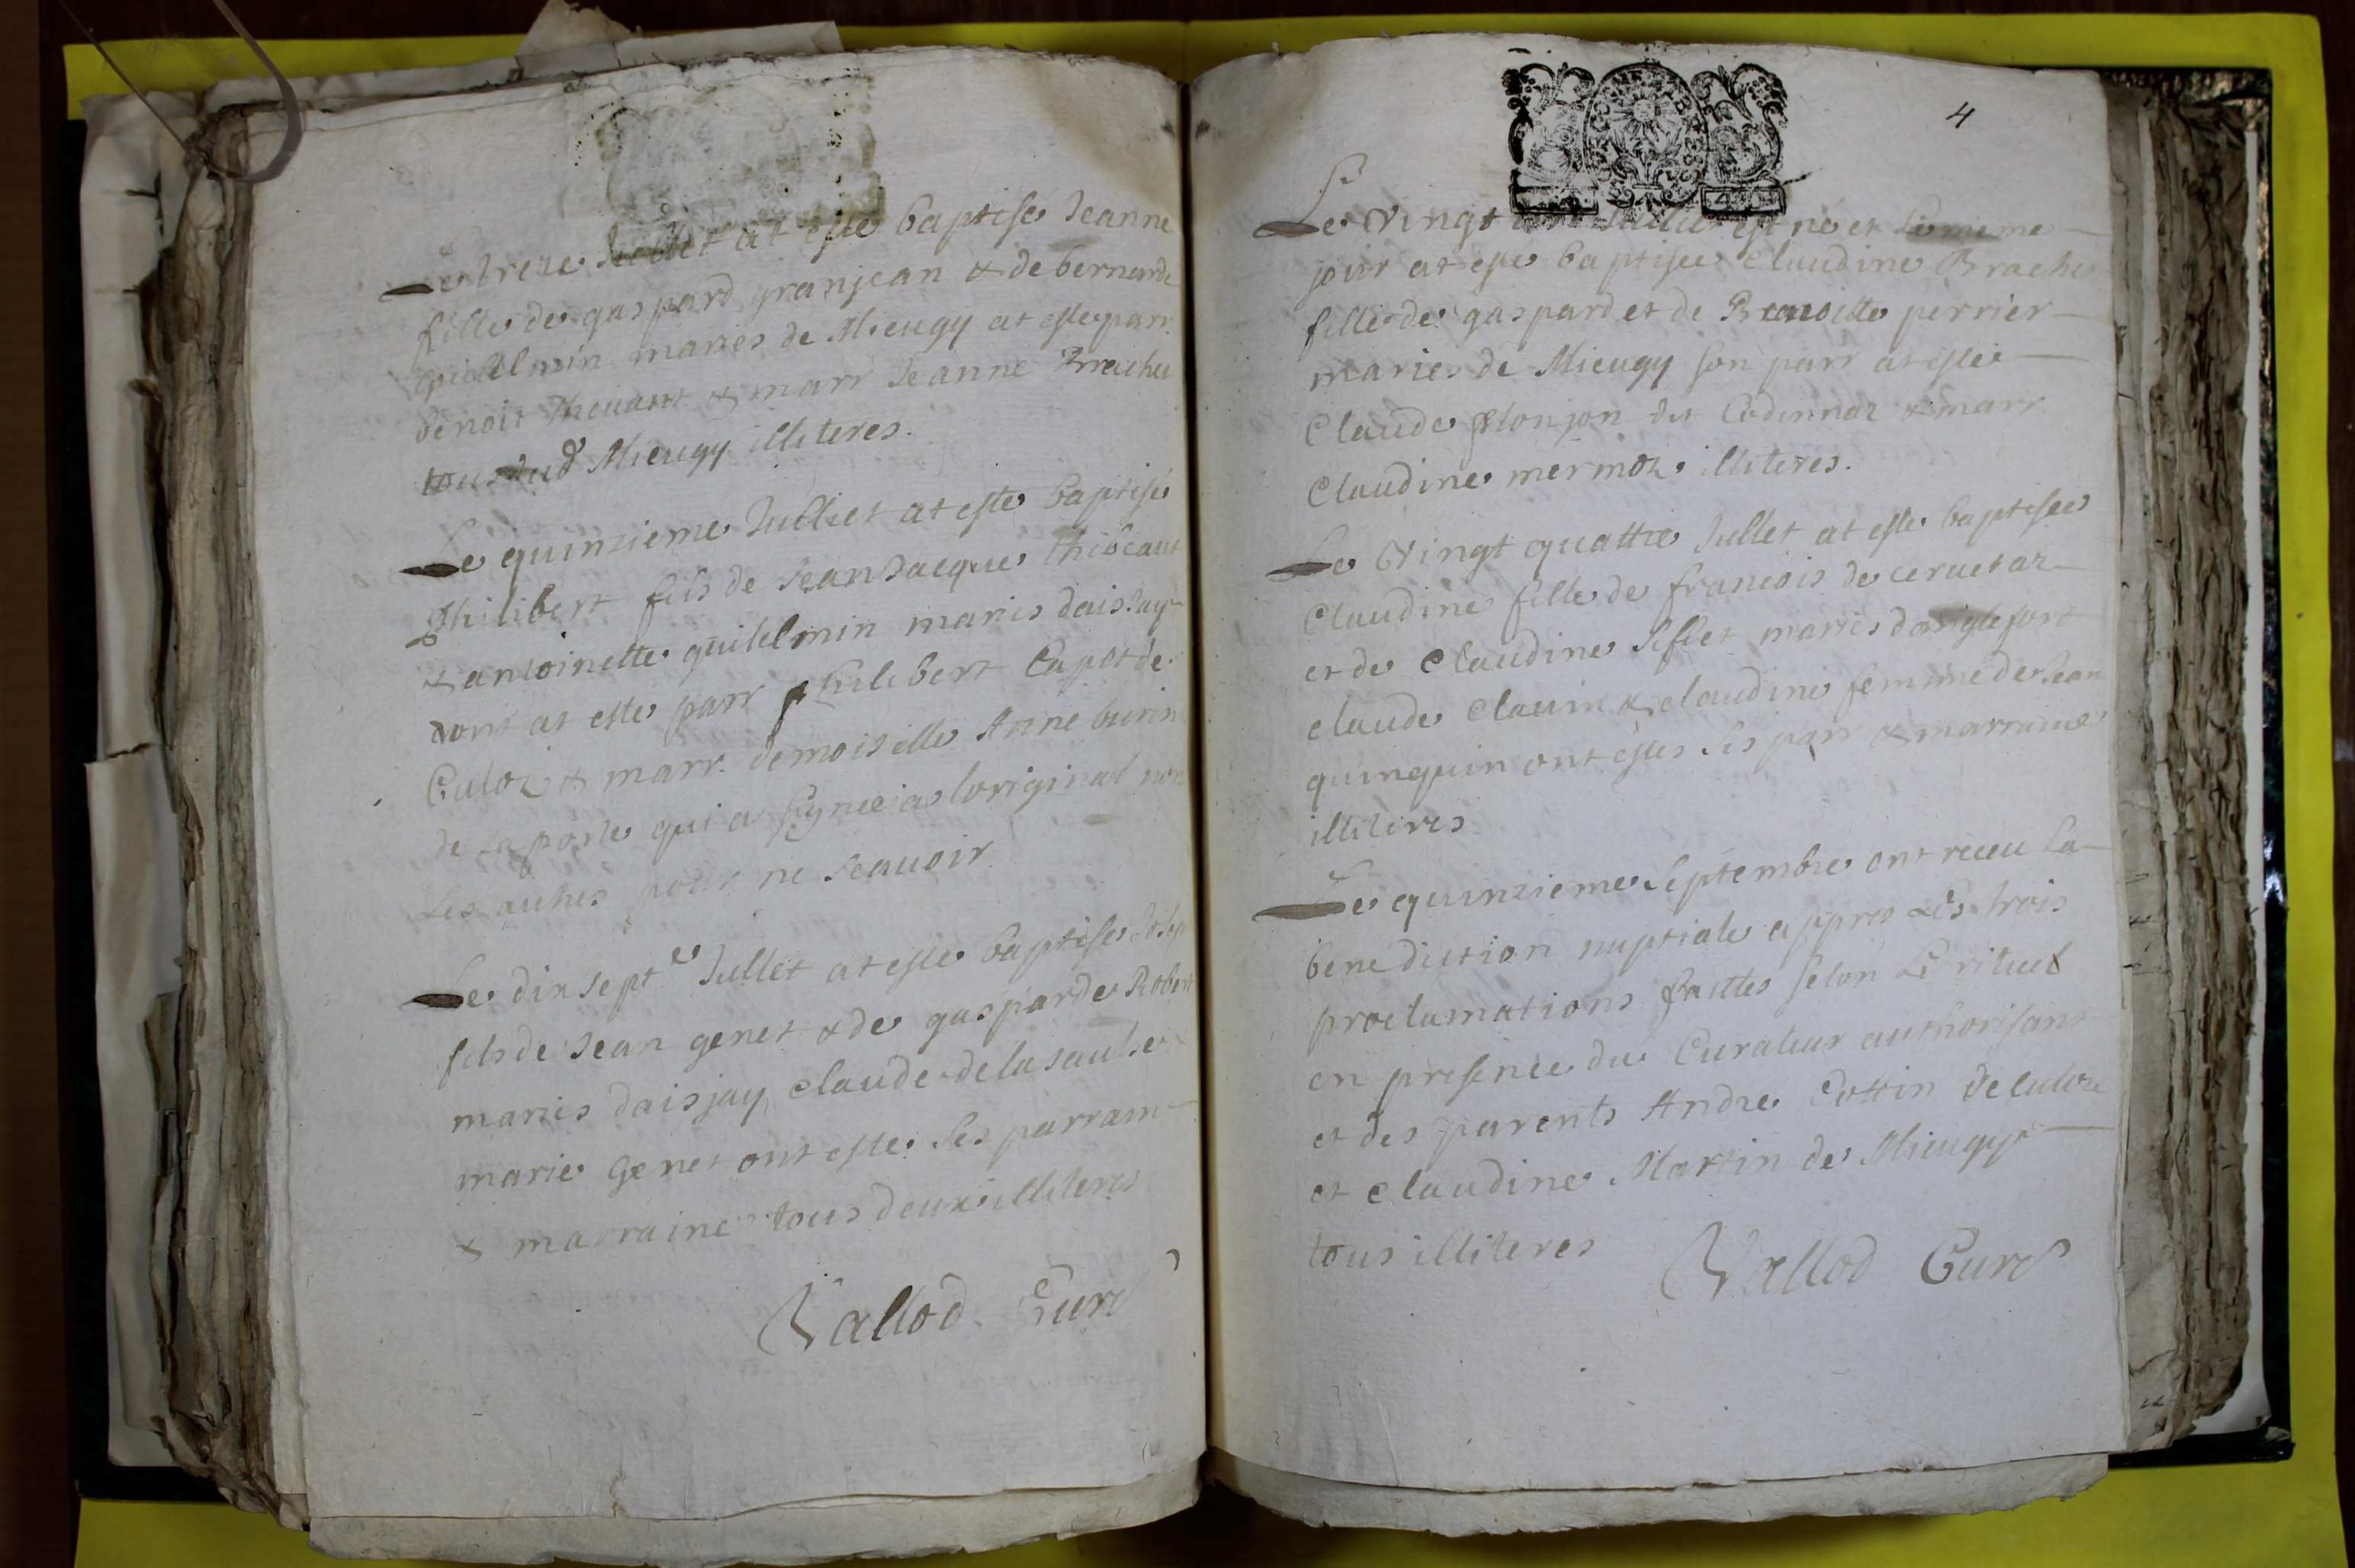 Le treze Juillet at esté baptisé Jeanne
fille de gaspard granjean & de bernarde
guillelmin mariés de Mieugy at esté parr
benoit thevant & marr Jeanne Brachu
tous dud Mieugy illiteres.
Le quinzieme Julliet at esté baptisé
philibert fils de Jean Jacque thibeaut
& antoinette guillelmin mariés daisjay
dont at esté parr philibert Capot de
Culoz & marr. demoiselle Anne burin
de la porte qui a signée a loriginal non
Les autres pour ne scauoir.
Le dix septe Jullet at esté baptisé Josep
fils de Jean genet & de gasparde Robert
mariés daisjay claude de la sauche &
marie Genet ont esté ses parrain
& marraine tous deux illiteres
Vallod Curé
4
Le vingt Juillet est né et le meme
jour at esté baptisée Claudine Brachu
fille de gaspard et de Benoitte perrier
mariés de Mieugy son parr at esté
Claude plonjon dit Codinnaz & marr.
Claudine mermoz illiteres.
Le Vingt quattre Jullet at esté baptisée
Claudine fille de francois de ceruetaz
et de Claudine Siflet mariés danglefort
claude Clauin & claudine femme de Jean
quinquin ont estés ses parr & marraine
illiteres
Le quinzieme Septembre ont receu la
benediction nuptiale appres Les trois
proclamations faittes selon Le rituel
en presence du Curateur authorisant
et des parents André Cottin de culoz
et claudine Martin de Mieugy
tous illiteres Vallod Curé